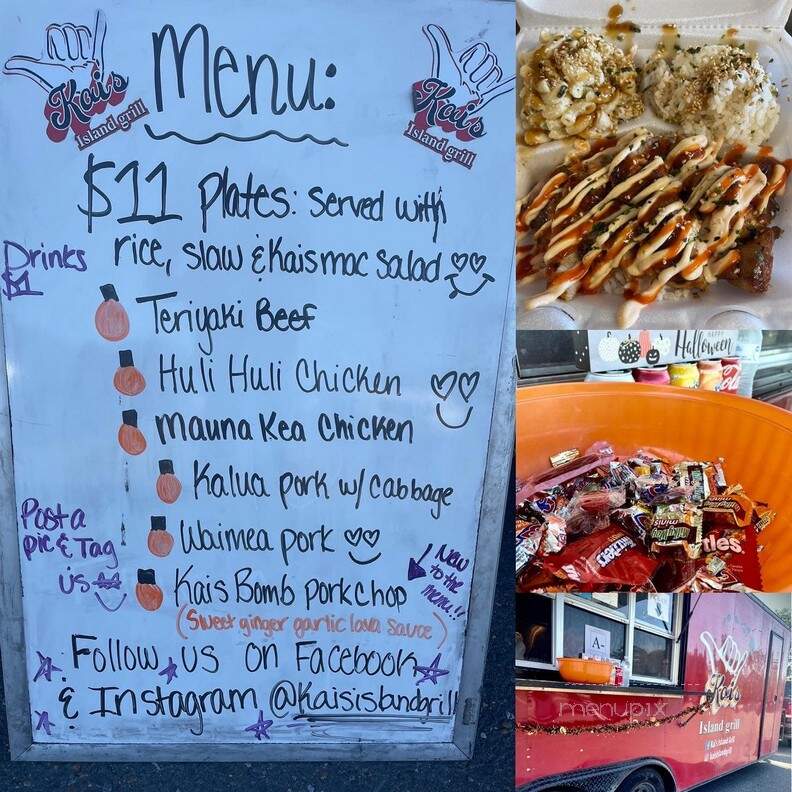 Kai's
Island grill
Menu:
Kai's
Island grill
$11 plates: served with
rice, slaw & Kais mac salad
Drinks
$1
Teriyaki Beef
Huli Huli Chicken
Mauna Kea Chicken
Kalua pork w/ cabbage
Waimea pork
Kais Bomb porkchop
(Sweet ginger garlic lava sauce)
New
to the
menu!!
Post a
pic & Tag
us
Follow us on Facebook
& Instagram @Kaisislandgrill
Halloween
Milky Way
minis
A-
menupix
Kai's
Island grill